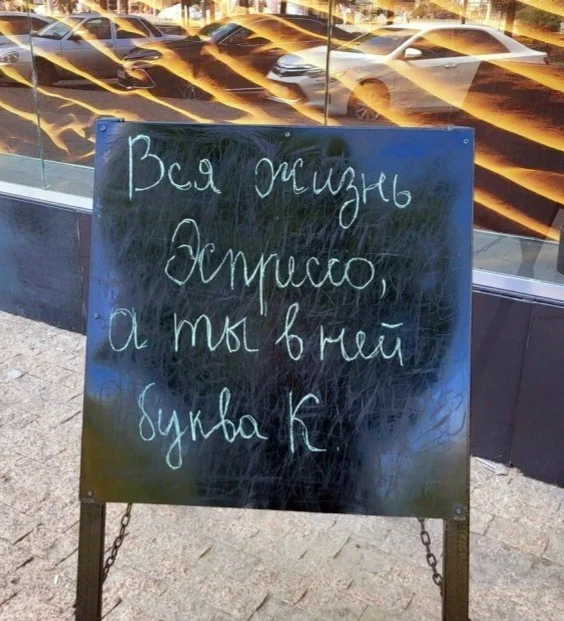 Вся жизнь
Эспрессо,
а ты в ней
буква К.